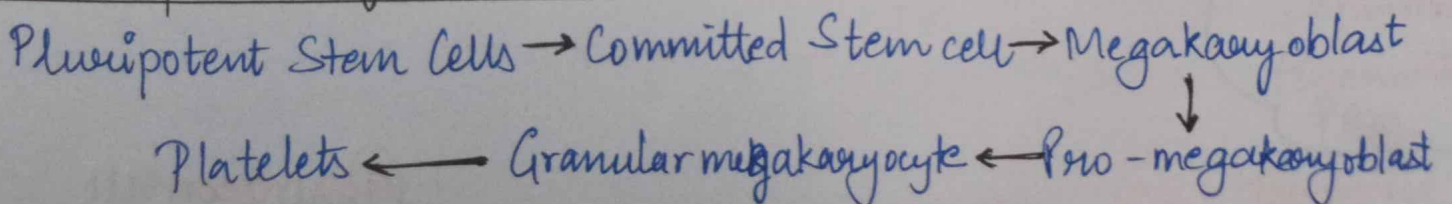 Pluripotent Stem Cells → Committed Stem cell → Megakaryoblast
↓
Platelets ← Granular megakaryocyte ← Pro-megakaryoblast